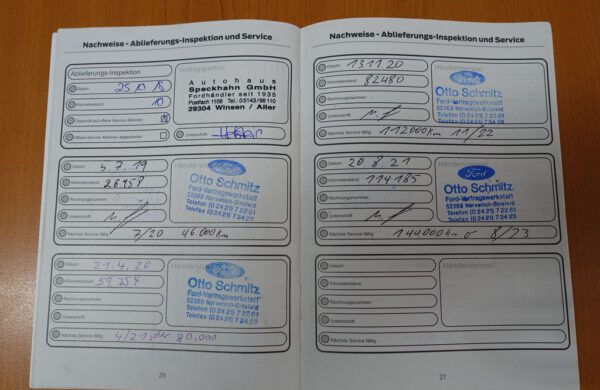 Nachweise - Ablieferungs-Inspektion und Service
Ablieferungs-Inspektion
Vertragspartner
Datum: 25 10 18
Kilometerstand: 10
Überprüft auf offene Service Aktionen:
Offene Service Aktionen abgewickelt:
Autohaus
Speckhahn GmbH
Fordhändler seit 1935
Postfach 1106 Tel. 05143/98110
29304 Winsen / Aller
Unterschrift:
Datum: 5.7.19
Kilometerstand: 26958
Rechnungsnummer:
Unterschrift:
Nächste Service fällig: 7/20 46.000km
Ford
Otto Schmitz
Ford-Vertragswerkstatt
52388 Nörvenich-Binsfeld
Telefon (0 24 21) 7 22 01
Telefax (0 24 21) 7 34 23
Datum: 21.4.20
Kilometerstand: 59.754
Rechnungsnummer:
Unterschrift:
Nächste Service fällig: 4/21 80.000
Ford
Otto Schmitz
Ford-Vertragswerkstatt
52388 Nörvenich-Binsfeld
Telefon (0 24 21) 7 22 01
Telefax (0 24 21) 7 34 23
26
Nachweise - Ablieferungs-Inspektion und Service
Datum: 13 11 20
Kilometerstand: 82480
Rechnungsnummer:
Unterschrift:
Nächste Service fällig: 112000km 11/22
Händlerstempel
Ford
Otto Schmitz
Ford-Vertragswerkstatt
52388 Nörvenich-Binsfeld
Telefon (0 24 21) 7 22 01
Telefax (0 24 21) 7 34 23
Datum: 20.8.21
Kilometerstand: 114185
Rechnungsnummer:
Unterschrift:
Nächste Service fällig: 144000km 8/23
Ford
Otto Schmitz
Ford-Vertragswerkstatt
52388 Nörvenich-Binsfeld
Telefon (0 24 21) 7 22 01
Telefax (0 24 21) 7 34 23
Datum:
Kilometerstand:
Rechnungsnummer:
Unterschrift:
Nächste Service fällig:
Händlerstempel
27